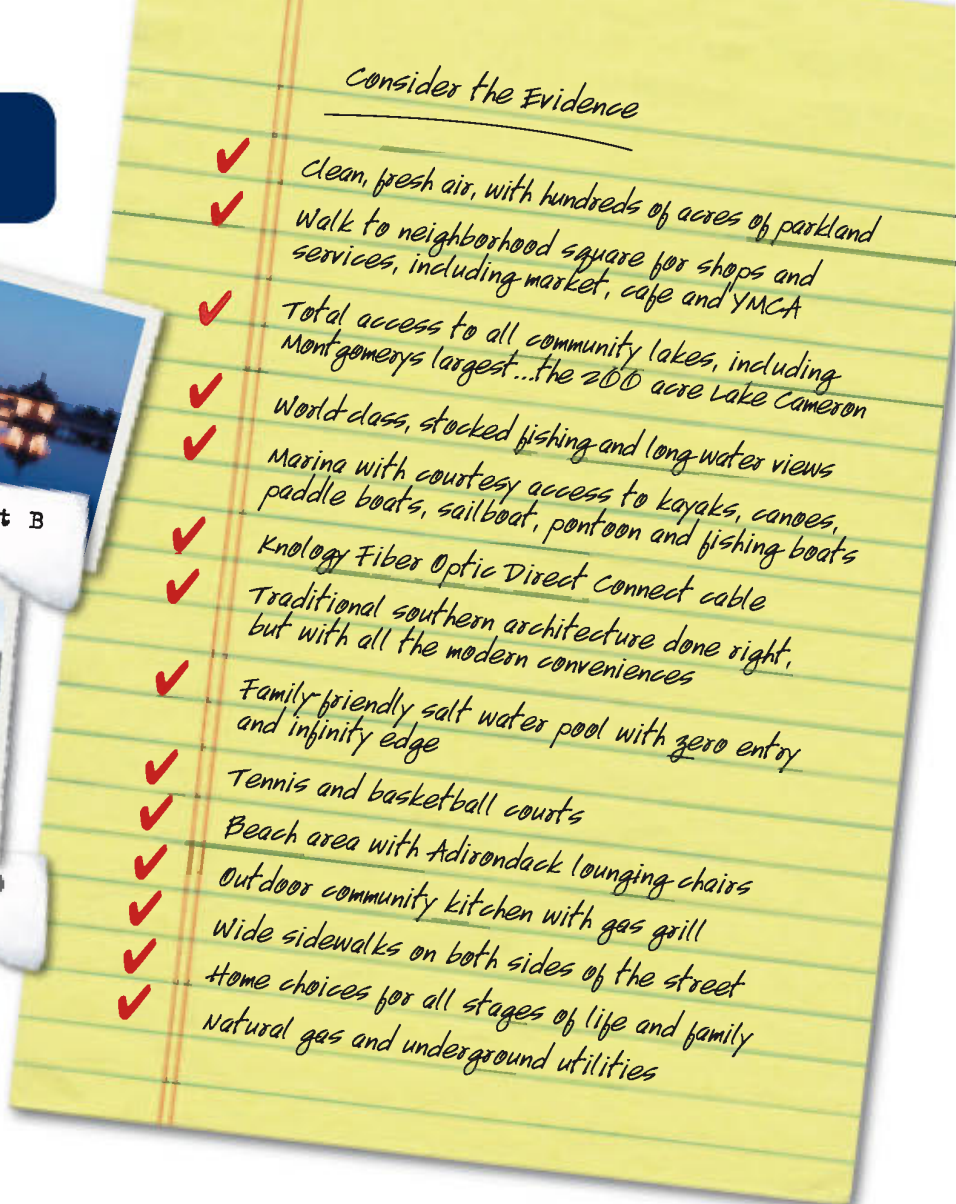 Consider the Evidence
Clean, fresh air, with hundreds of acres of parkland
Walk to neighborhood square for shops and
services, including market, cafe and YMCA
Total access to all community lakes, including
Montgomerys largest...the 200 acre Lake Cameron
World-class, stocked fishing and long water views
Marina with courtesy access to kayaks, canoes,
paddle boats, sailboat, pontoon and fishing boats
t B
Knology Fiber Optic Direct Connect cable
Traditional southern architecture done right,
but with all the modern conveniences
Family-friendly salt water pool with zero entry
and infinity edge
Tennis and basketball courts
Beach area with Adirondack lounging chairs
Outdoor community kitchen with gas grill
Wide sidewalks on both sides of the street
Home choices for all stages of life and family
Natural gas and underground utilities